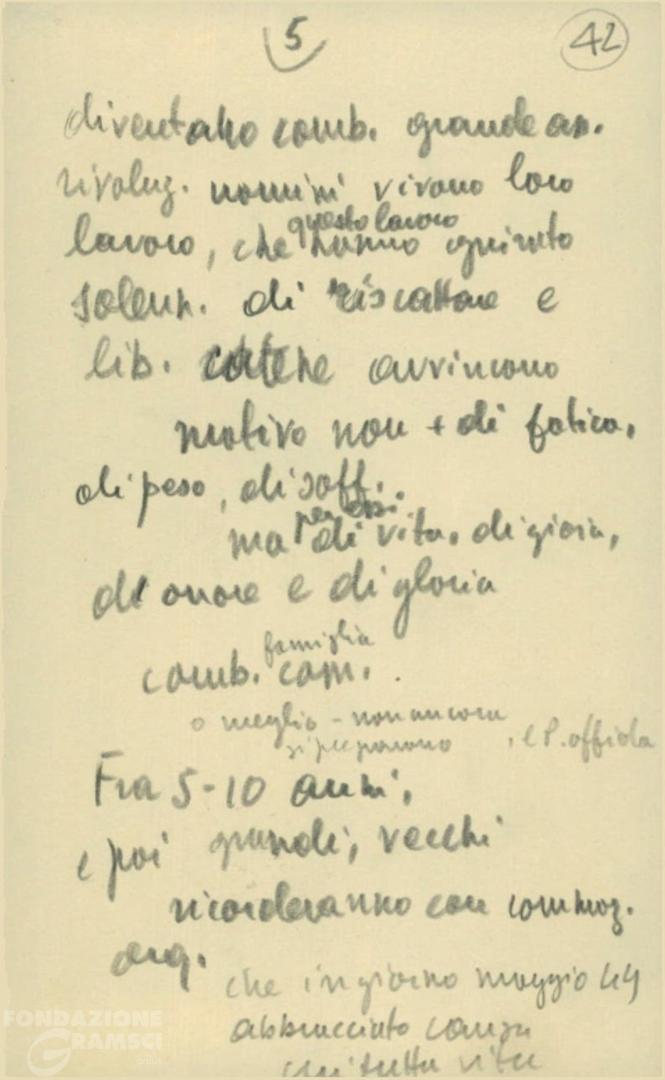 5
42
diventano comb. grande
rivoluz. uomini vivono loro
questo lavoro
lavoro, che hanno giurato
solenn. di riscattare e
lib. catene avvincono
motivo non + di fatica,
di peso, di soff.
per essi
ma di vita, di gioia,
di onore e di gloria
famiglia
comb. com.
o meglio - non ancora
si preparano , e P. affida
Fra 5-10 anni,
e poi grandi, vecchi
ricorderanno con commoz.
org.
che in giorno maggio 44
abbracciato causa
cui tutta vita
FONDAZIONE
GRAMSCI